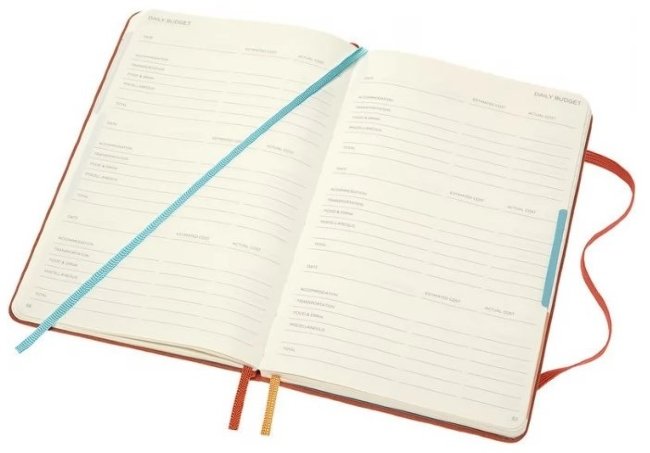 DAILY BUDGET
DATE
ESTIMATED COST ACTUAL COST
ACCOMMODATION
TRANSPORTATION
FOOD & DRINK
MISCELLANEOUS
TOTAL
DATE
ESTIMATED COST ACTUAL COST
ACCOMMODATION
TRANSPORTATION
FOOD & DRINK
MISCELLANEOUS
TOTAL
DATE
ESTIMATED COST ACTUAL COST
ACCOMMODATION
TRANSPORTATION
FOOD & DRINK
MISCELLANEOUS
TOTAL
DAILY BUDGET
DATE
ESTIMATED COST ACTUAL COST
ACCOMMODATION
TRANSPORTATION
FOOD & DRINK
MISCELLANEOUS
TOTAL
DATE
ESTIMATED COST ACTUAL COST
ACCOMMODATION
TRANSPORTATION
FOOD & DRINK
MISCELLANEOUS
TOTAL
DATE
ESTIMATED COST ACTUAL COST
ACCOMMODATION
TRANSPORTATION
FOOD & DRINK
MISCELLANEOUS
TOTAL